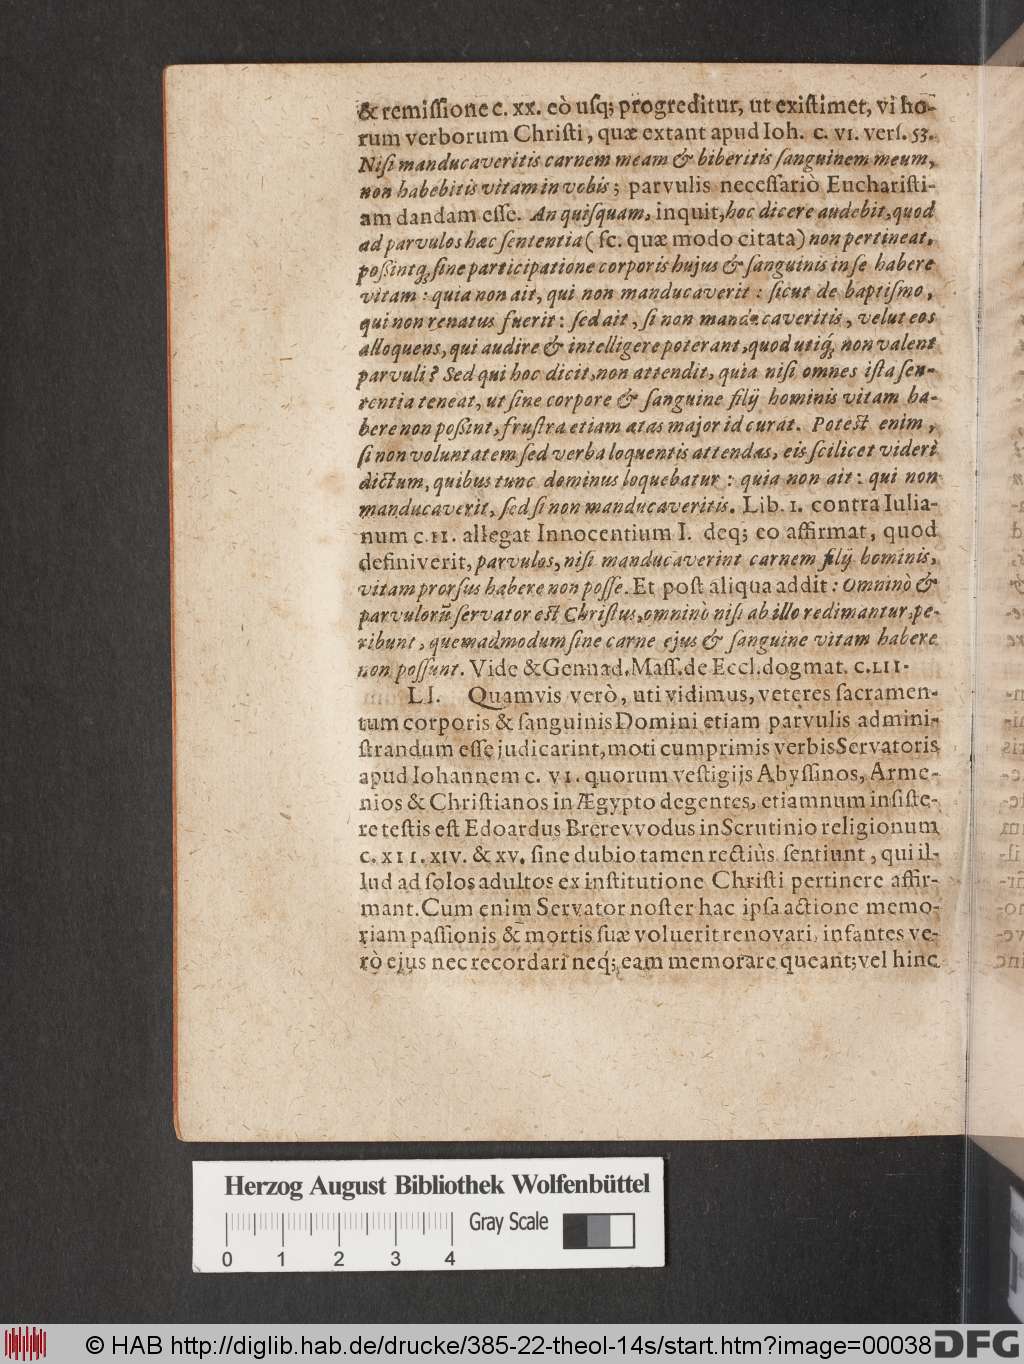 & remissione c. xx. eò usq; progreditur, ut existimet, vi ho-
rum verborum Christi, quæ extant apud Ioh. c. VI. vers. 53.
Nisi manducaveritis carnem meam & biberitis sanguinem meum,
non habebitis vitam in vobis; parvulis necessariò Eucharisti-
am dandam esse. An quisquam, inquit, hoc dicere audebit, quod
ad parvulos hæc sententia (sc. quæ modo citata) non pertineat,
poßintq́, sine participatione corporis hujus & sanguinis in se habere
vitam: quia non ait, qui non manducaverit: sicut de baptismo,
qui non renatus fuerit: sed ait, si non manducaveritis, velut eos
alloquens, qui audire & intelligere poterant, quod utiq́, non valent
parvuli? Sed qui hoc dicit, non attendit, quia nisi omnes ista sen-
tentia teneat, ut sine corpore & sanguine filij hominis vitam ha-
bere non poßint, frustra etiam ætas major id curat. Potest enim,
si non voluntatem sed verba loquentis attendas, eis scilicet videri
dictum, quibus tunc dominus loquebatur: quia non ait: qui non
manducaverit, sed si non manducaveritis. Lib. I. contra Iulia-
num c. II. allegat Innocentium I. deq; eo affirmat, quod
definiverit, parvulos, nisi manducaverint carnem filij hominis,
vitam prorsus habere non posse. Et post aliqua addit: Omninò &
parvulorũ servator est Christus, omninò nisi ab illo redimantur, pe-
ribunt, quemadmodum sine carne ejus & sanguine vitam habere
non possunt. Vide & Gennad. Mass. de Eccl. dogmat. c. LII.
LI. Quamvis verò, uti vidimus, veteres sacramen-
tum corporis & sanguinis Domini etiam parvulis admini-
strandum esse judicarint, moti cumprimis verbis Servatoris
apud Iohannem c. VI. quorum vestigijs Abyssinos, Arme-
nios & Christianos in Ægypto degentes, etiamnum insiste-
re testis est Edoardus Brerevvodus in Scrutinio religionum
c. XII. XIV. & XV. sine dubio tamen rectiùs sentiunt, qui il-
lud ad solos adultos ex institutione Christi pertinere affir-
mant. Cum enim Servator noster hac ipsa actione memo-
riam passionis & mortis suæ voluerit renovari, infantes ve-
rò ejus nec recordari neq́; eam memorare queant; vel hinc
Herzog August Bibliothek Wolfenbüttel
Gray Scale
0 1 2 3 4
© HAB http://diglib.hab.de/drucke/385-22-theol-14s/start.htm?image=00038
DFG